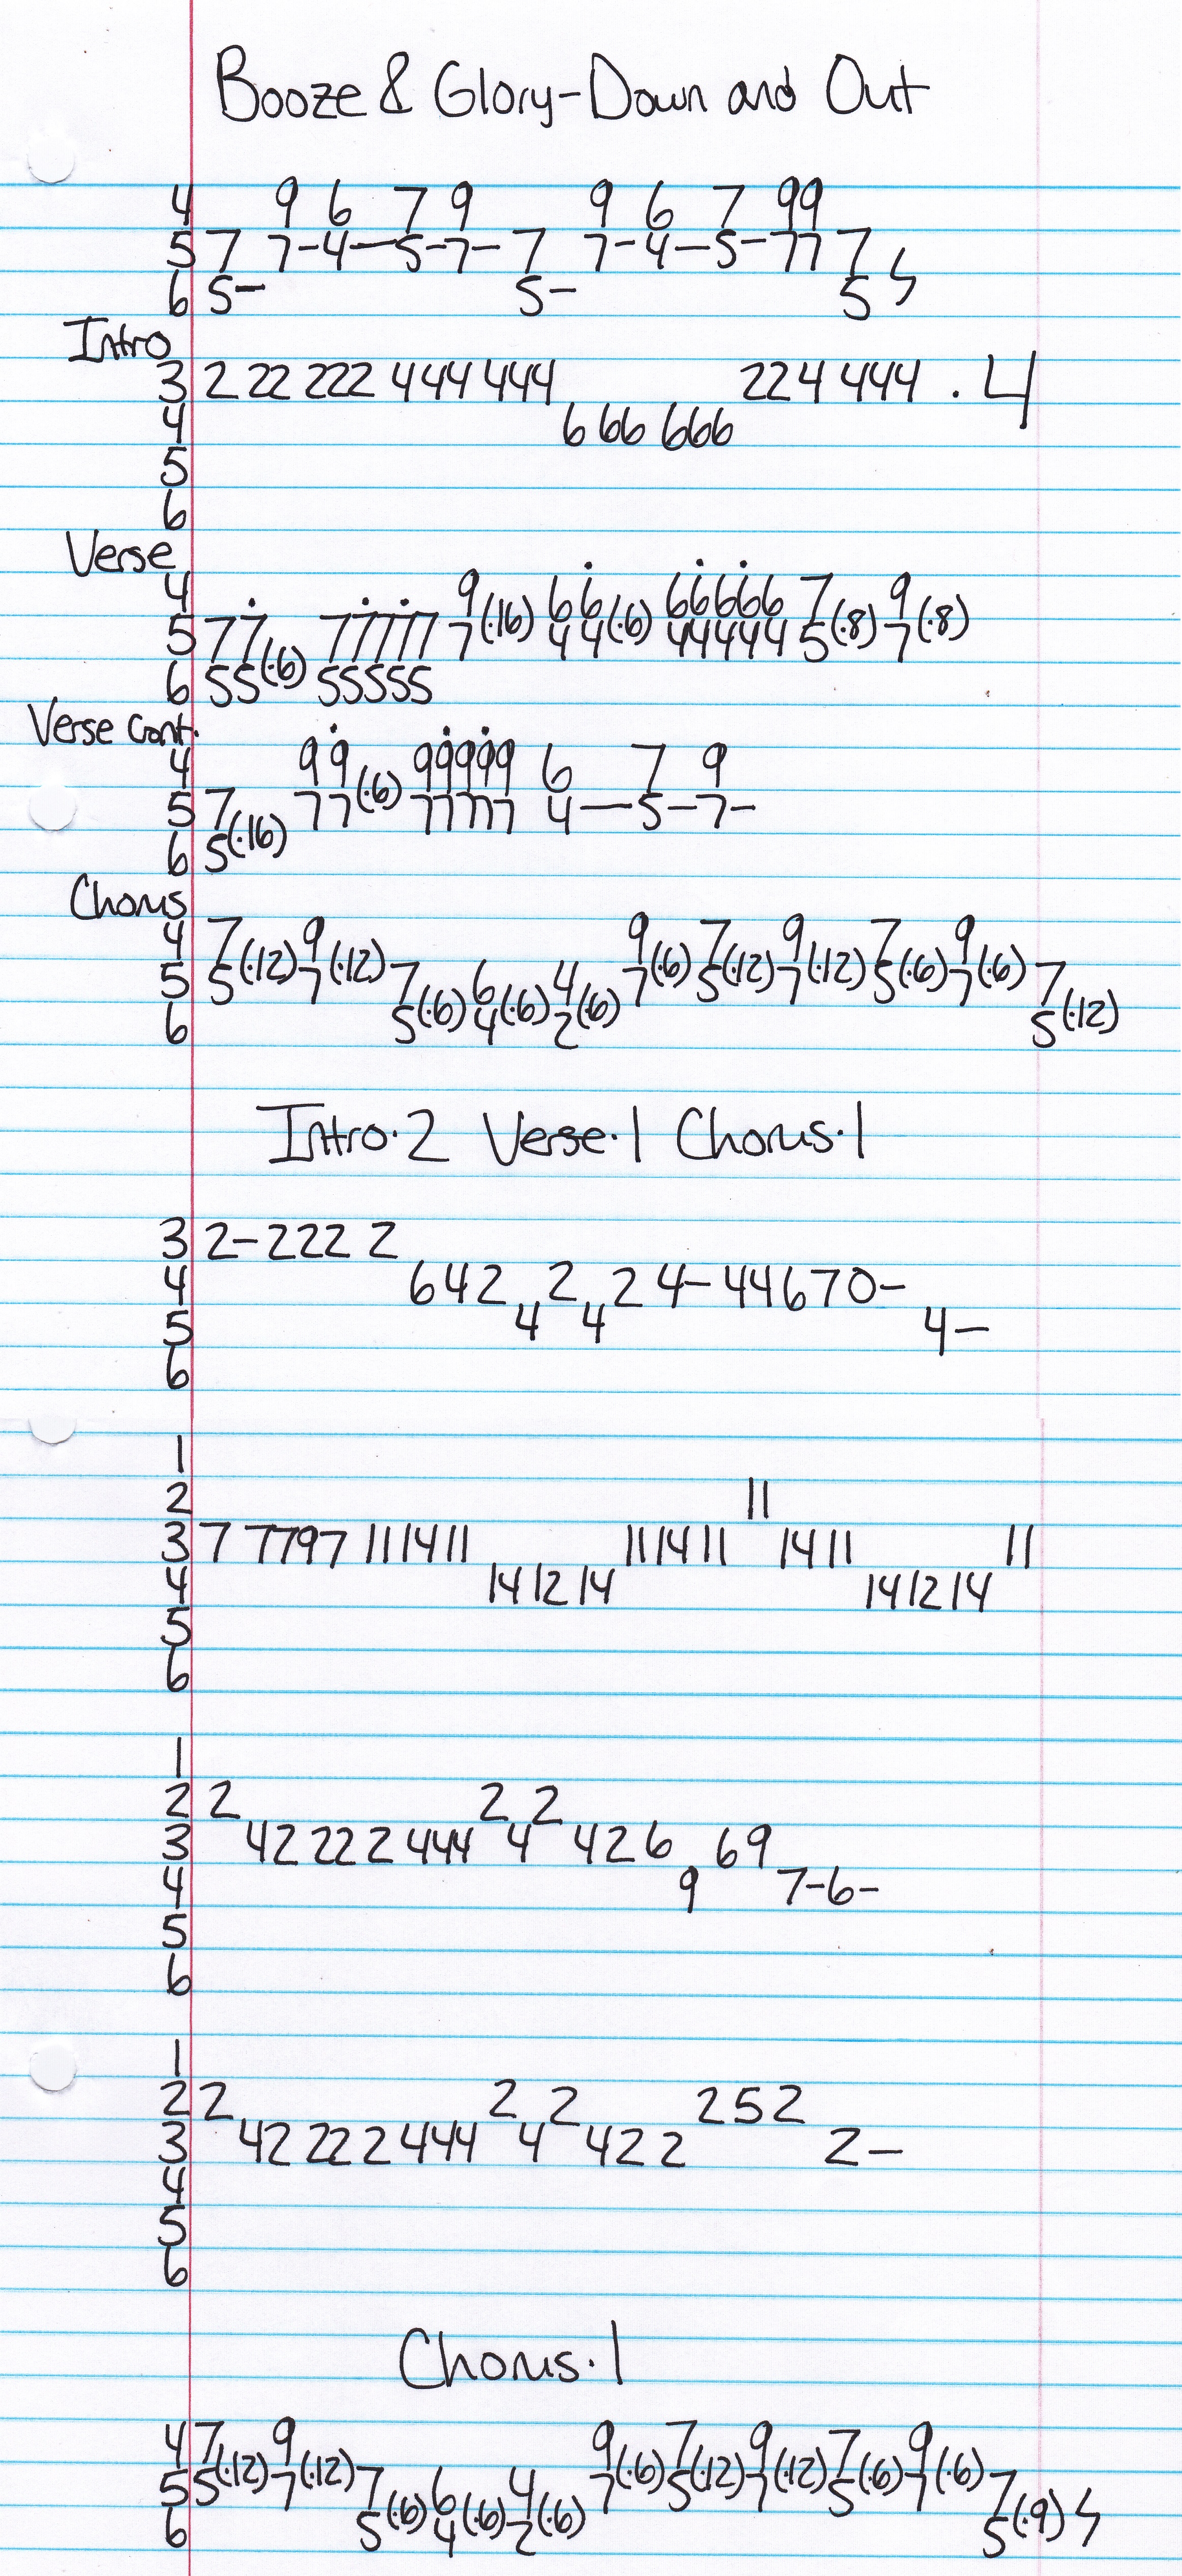 Booze & Glory-Down and Out
4 9 6 7 9 9 6 7 99
5 7 7-4—5-7- 7 7-4—5-77 7
6 5- 5- 5
Intro
3 2 22 222 444 444 224 444 .4
4 6 66 666
5
6
Verse
4 9 66 66666 7 9
5 77 77777 7(·16) 44(·6) 44444 5(·8) 7(·8)
6 55(·6) 55555
Verse Cont.
4 99 99999 6 7 9
5 7 77(·6) 77777 4—5-7-
6 5(·16)
Chorus
4 7 9 9 7 9 7 9
5 5(·12) 7(·12) 7 6 4 7(·6) 5(·12) 7(·12) 5(·6) 7(·6) 7
6 5(·6) 4(·6) 2(·6) 5(·12)
Intro·2 Verse·1 Chorus·1
3 2-222 2
4 642 2 24-44670-
5 4 4 4-
6
1
2 11
3 7 7797 11 14 11 11 14 11 14 11 11
4 14 12 14 14 12 14
5
6
1
2 2 2 2
3 42 222 444 4 426 69
4 9 7-6-
5
6
1
2 2 2 2 252
3 42 222 444 4 422 2-
4
5
6
Chorus·1
4 7 9 9 7 9 7 9
5 5(·12) 7(·12) 7 6 4 7(·6) 5(·12) 7(·12) 5(·6) 7(·6) 7
6 5(·6) 4(·6) 2(·6) 5(·9)